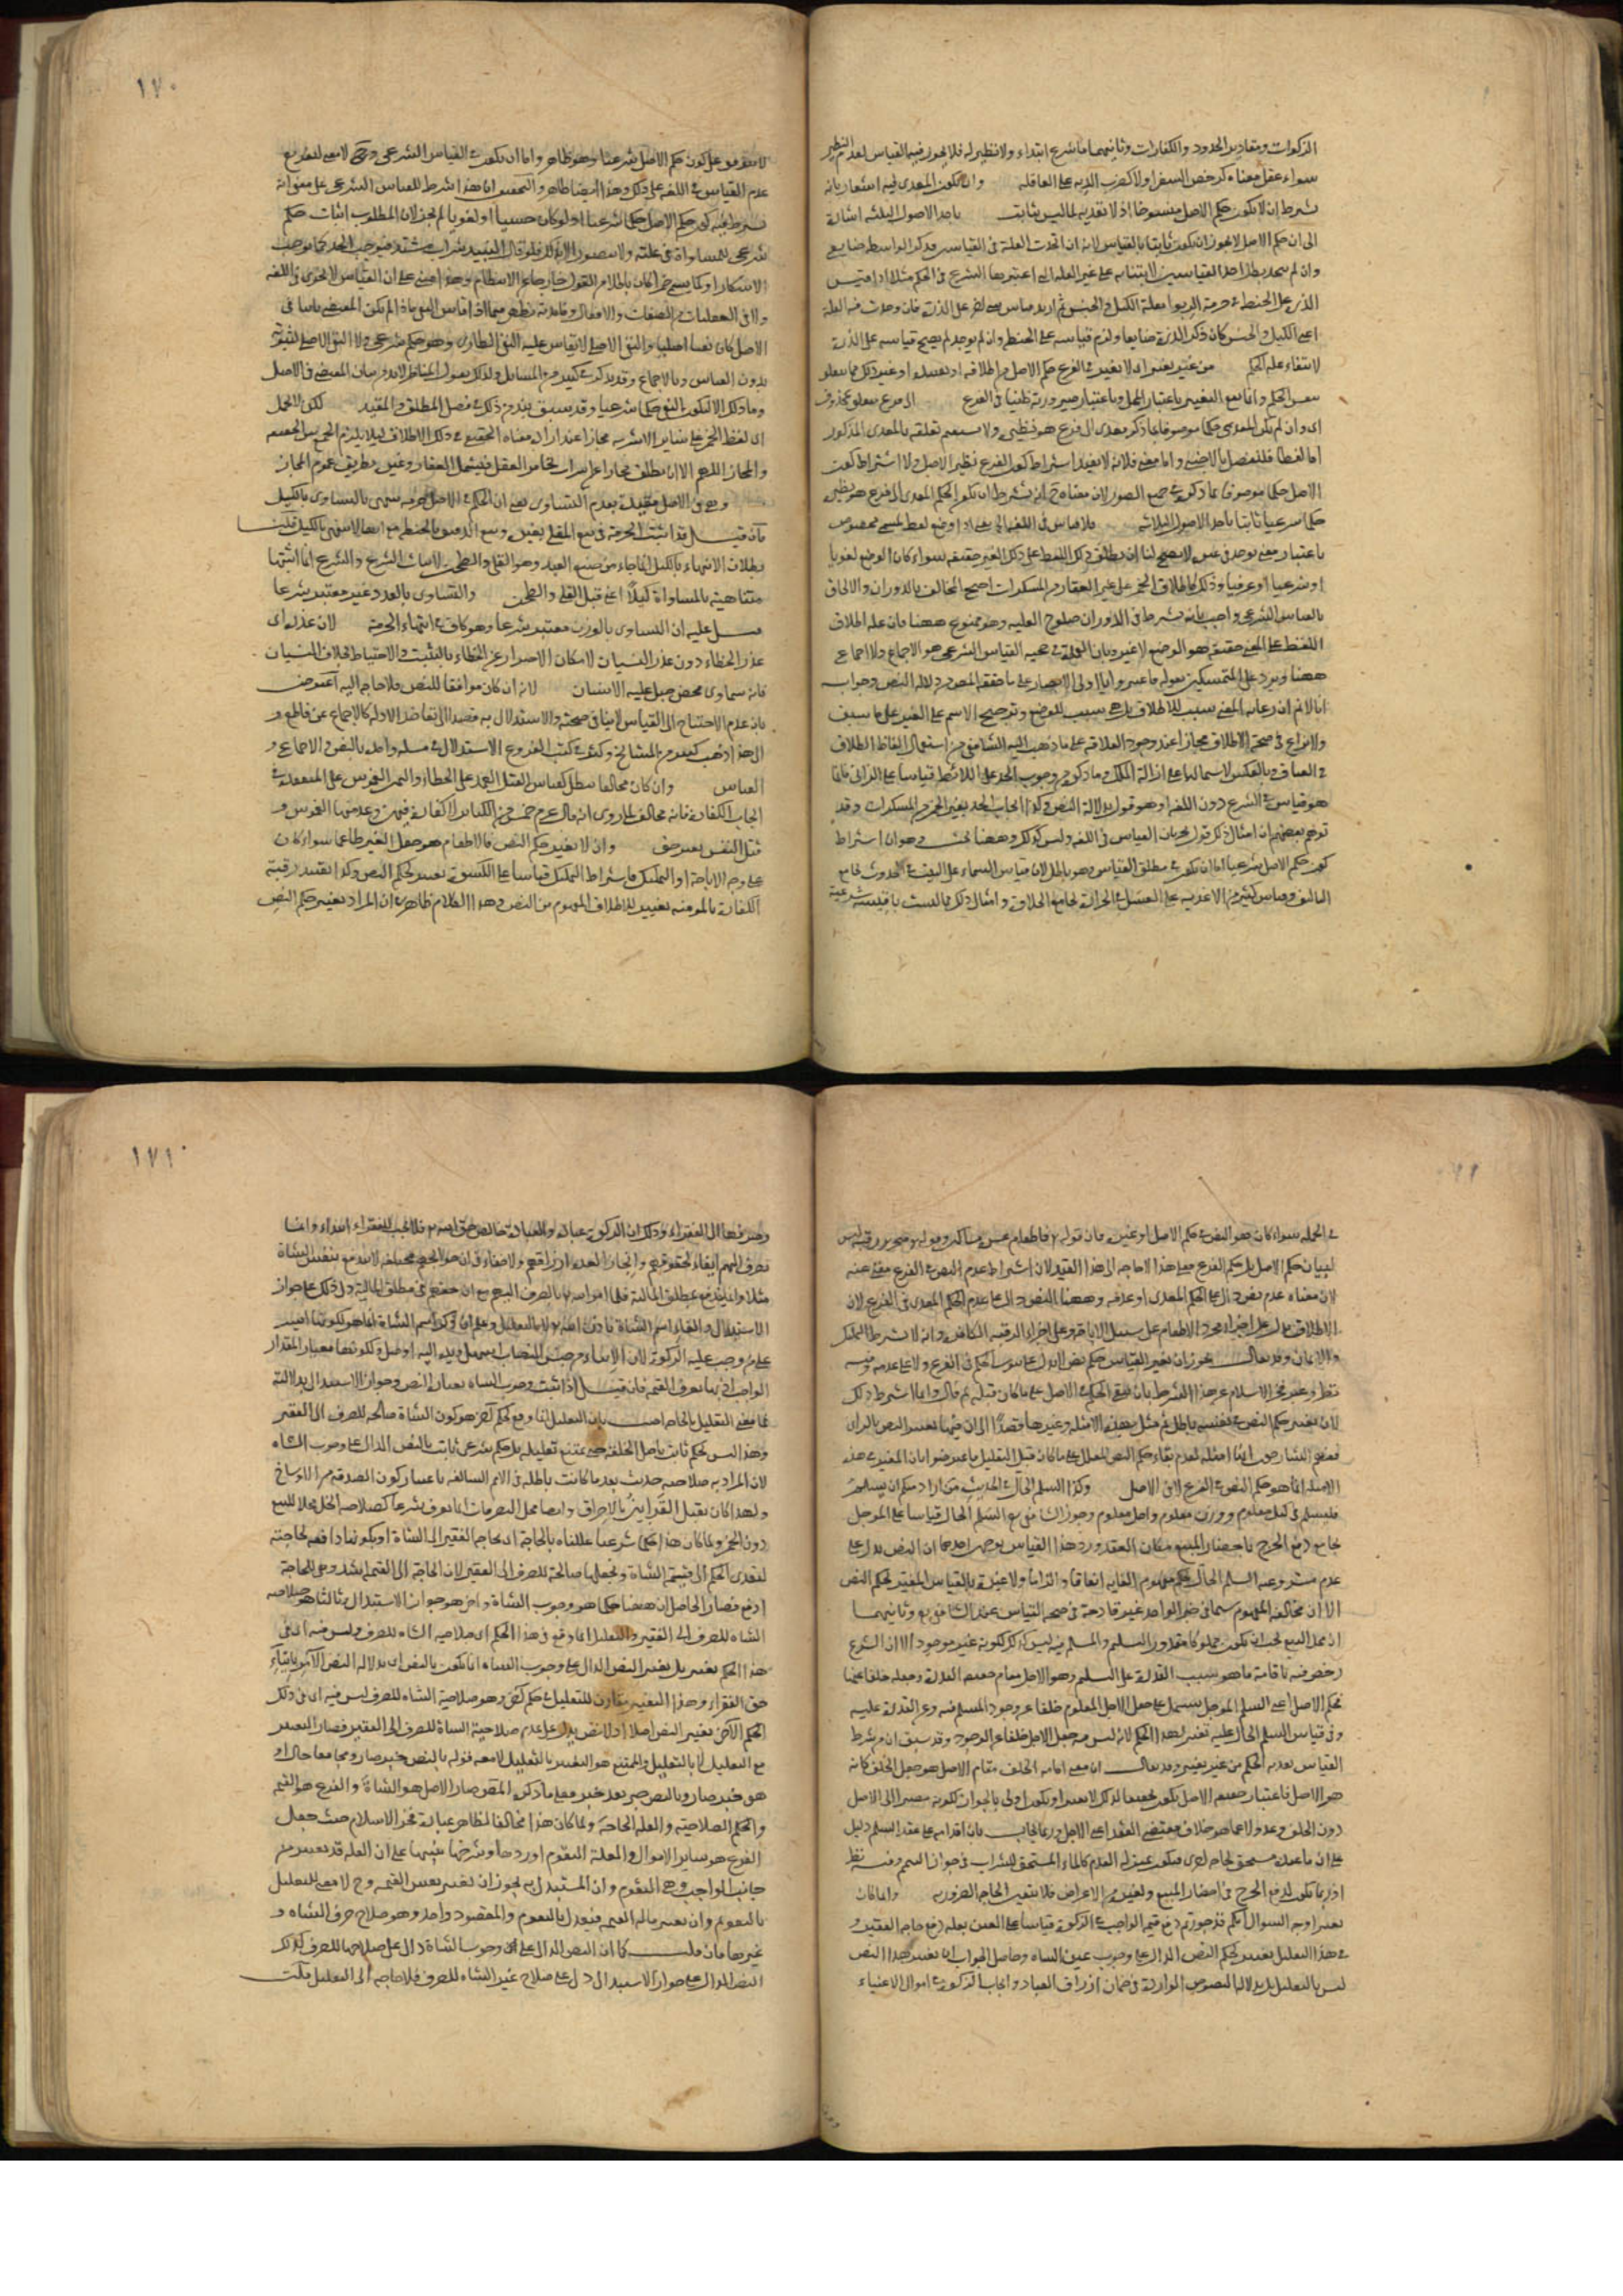 الزكوات ومقادير الحدود والكفارات وثانيهما ما شرع ابتداء ولا نظير له فلا يجوز فيه القياس لعدم النظير
سواء عقل معناه كرخص السفر اولا كضرب الدية على العاقلة وان يكون المعدى فيه اشعار بانه
شرط ان لا يكون حكم الاصل منسوخا اذ لا تعدية لما ليس بثابت باحد الاصول الثلثه اشارة
الى ان حكم الاصل لا يجوز ان يكون ثابتا بالقياس لانه ان اتحدت العلة فى القياسين فذكر الواسطة ضايع
وان لم يتحد بطل احد القياسين لابتنائه على غير العلة التى اعتبرها الشرع فى الحكم مثلا اذا قيس
الذرة على الحنطة فى حرمة الربوا بعلة الكيل والجنس ثم اريد قياس شىء اخر على الذرة فان وجدت فيه العلة
اعنى الكيل والجنس كان ذكر الذرة ضايعا ولزم قياسه على الحنطة وان لم يوجد لم يصح قياسه على الذرة
لانتفاء علة الحكم من غير تغيير اى لا يغير فى الفرع حكم الاصل من اطلاقه او تقييده او غير ذلك مما يتعلق
بنفس الحكم وانما يقع التغيير باعتبار المحل وباعتبار صيرورته ظنيا فى الفرع الى فرع متعلق بمحذوف
اما لفظا فللفصل بالاجنبى واما معنى فلانه لا يفيد اشتراط كون الفرع نظير الاصل ولا اشتراط كون
الاصل حكما موصوفا بما ذكر فى جميع الصور لان معناه ح انه يشترط ان يكون الحكم المعدى الى فرع هو نظيره
حكما شرعيا ثابتا باحد الاصول الثلاثه فلا قياس فى اللغة اى يعنى اذا وضع لفظ لمسمى مخصوص
باعتبار معنى يوجد فى غيره لا يصح لنا ان نطلق ذلك اللفظ على ذلك الغير حقيقة سواء كان الوضع لغويا
او شرعيا او عرفيا وذلك كاطلاق الخمر على غير العقار من المسكرات احتج المخالف بالدوران والالحاق
بالقياس الشرعى واجيب بانه شرط فى الدوران صلوح العلية وهو ممنوع ههنا فان علة اطلاق
اللفظ على المعنى حقيقة هو الوضع لا غير وبان العمدة فى حجية القياس الشرعى هو الاجماع ولا اجماع
ههنا ويرد على المتمسكين بقوله فاعتبروا يا اولى الابصار على ما حققه المصنف من دلالة النص وجوابه
انا لا نم ان رعاية المعنى سبب للاطلاق بل هى سبب للوضع وترجيح الاسم على الغير على ما سبق
ولا نزاع فى صحة الاطلاق مجازا عند وجود العلاقة على ما ذهب اليه الشافعى من استعمال الفاظ الطلاق
فى العتاق وبالعكس لاشتمالها على ازالة الملك وما ذكر من وجوب الحد على اللائط قياسا على الزانى فانما
هو قياس فى الشرع دون اللغة او هو قول بدلالة النص وكذا ايجاب الحد بغير الخمر من المسكرات وقد
توهم بعضهم ان امثال ذلك قول بجريان القياس فى اللغة وليس كذلك وههنا بحث وهو ان اشتراط
كون حكم الاصل شرعيا اما ان يكون فى مطلق القياس وهو باطل لان قياس السماء على البيت فى الحدوث بجامع
التاليف وقياس كثير من الاغذية على العسل فى الحرارة بجامع الحلاوة وامثال ذلك ليست باقيسة شرعية
١٧٠
لا يتوقف على كون حكم الاصل شرعيا وهو ظاهر واما ان يكون فى القياس الشرعى وح لا معنى لتفريع
عدم القياس فى اللغة على ذلك وهذا ايضا ظاهر والتحقيق ان هذا شرط للقياس الشرعى على معنى انه
يشترط فيه كون حكم الاصل حكما شرعيا اذ لو كان حسيا او لغويا لم يجز لان المطلوب اثبات حكم
شرعى للمساواة فى علته ولا يتصور الا بذلك فلو قال النبيذ شراب مشتد فيوجب الحد كما يوجب
الاسكار او كما يسمى خمرا كان باطلا من القول خارجا عن الانتظام وهذا مبنى على ان القياس لا يجرى فى اللغة
ولا فى العقليات من الصفات والافعال وفائدته تظهر فيما اذا قاس النفى فاذا لم يكن المقتضى ثابتا فى
الاصل كان نفيا اصليا والنفى الاصلى لا يقاس عليه النفى الطارى وهو حكم شرعى ولا النفى الاصلى لثبوته
بدون القياس وبلا جامع وقد يذكر فى كثير من المسائل ولذلك يقول المناظر لابد من بيان المقتضى فى الاصل
وما ذلك الا ليكون النفى حكما شرعيا وقد سبق نبذ من ذلك فى فصل المطلق والمقيد لكن لا يحمل
اى لفظ الخمر على سائر الاشربة مجازا عند ارادة معناه الحقيقى فى ذلك الاطلاق لئلا يلزم الجمع بين الحقيقة
والمجاز اللهم الا ان يطلق مجازا على شراب يخامر العقل فيشمل العقار وغيره بطريق عموم المجاز
وهى فى الاصل مقيدة بعدم التساوى يعنى ان الحكم فى الاصل حرمة تنتهى بالتساوى بالكيل
فان قيل قد اثبتت الحرمة فى بيع المقلى بغيره وبيع الدقيق بالحنطة مع انها لا تنتهى بالكيل قلنا
بطلان الانتهاء بالكيل انما جاء من صنع العبد وهو القلى والطحن لا باثبات الشرع والشرع انما اثبتها
متناهية بالمساواة كيلا اعنى قبل القلى والطحن والتساوى بالعدد غير معتبر شرعا
قيل عليه ان التساوى بالوزن معتبر شرعا وهو كاف فى انتهاء الحرمة لان عذره اى
عذر الخطاء دون عذر النسيان لامكان الاحتراز عن الخطاء بالتثبت والاحتياط بخلاف النسيان
فانه سماوى محض جبل عليه الانسان لانه ان كان موافقا للنص فلا حاجة اليه اعترض
بان عدم الاحتياج الى القياس لا ينافى صحته والاستدلال به قصدا الى تعاضد الادلة كالاجماع عن قاطع و
الى هذا ذهب كثير من المشايخ وكثر فى كتب الفروع الاستدلال فى مسئلة واحدة بالنص والاجماع و
القياس وان كان مخالفا يبطل كقياس القتل العمد على الخطاء واليمين الغموس على المنعقدة فى
ايجاب الكفارة فانه مخالف لما روى انه قال عم خمس من الكبائر لا كفارة فيهن وعد منها الغموس و
قتل النفس بغير حق وان لا يغير حكم النص فالاطعام هو جعل الغير طاعما سواء كان
على وجه الاباحة او التمليك فاشتراط التمليك قياسا على الكسوة تغيير لحكم النص وكذا تقييد رقبة
الكفارة بالمومنة تغيير للاطلاق المفهوم من النص وهذا الكلام ظاهر فى ان المراد تغيير حكم النص
فى الجملة سواء كان هو النص فى حكم الاصل او غيره فان قوله تعالى فاطعام عشرة مساكين وقوله فتحرير رقبة ليس
لبيان حكم الاصل بل حكم الفرع فعلى هذا لا حاجة الى هذا القيد لان اشتراط عدم النص فى الفرع مغن عنه
لان معناه عدم نص دال على الحكم المعدى او عدمه وههنا النص دال على عدم الحكم المعدى فى الفرع لان
الاطلاق يدل على اجزاء مجرد الاطعام على سبيل الاباحة وعلى اجزاء الرقبة الكافرة وانه لا يشترط التمليك
والايمان وقد يقال يجوز ان يغير القياس حكم نص لا يدل على ثبوت الحكم فى الفرع ولا على عدمه وفيه
نظر وعبر فخر الاسلام عن هذا الشرط بان يبقى الحكم فى الاصل على ما كان قبله ثم قال وانما اشترط ذلك
لان تغيير حكم النص فى نفسه باطل ثم مثل بهذه الامثلة وغيرها
الامثلة انما هو حكم النص فى الفرع لا فى الاصل وكذا السلم الحال فى الحديث من اراد منكم ان يسلم
فليسلم فى كيل معلوم ووزن معلوم واجل معلوم وجوز الشافعى السلم الحال قياسا على الموجل
بجامع دفع الحرج باحضار المبيع مكان العقد ورد هذا القياس بوجهين احدهما ان النص يدل على
عدم مشروعية السلم الحال بحكم مفهوم الغاية اتفاقا والزاما ولا عبرة بالقياس المغير لحكم النص
الا ان مخالفة المفهوم سيما فى خبر الواحد غير قادحة فى صحة القياس عند الشافعى وثانيهما
ان محل البيع يجب ان يكون مملوكا مقدور التسليم والمسلم فيه ليس كذلك لكونه غير موجود الا ان الشرع
رخص فيه باقامة ما هو سبب القدرة على التسليم وهو الاجل مقام حقيقة القدرة وجعله خلفا عنها
فحكم الاصل اعنى السلم الموجل يشتمل على جعل الاجل المعلوم خلفا عن وجود المسلم فيه وعن القدرة عليه
وفى قياس السلم الحال عليه تغيير لهذا الحكم لانه ليس فيه جعل الاجل خلفا عن الوجود وقد سبق ان من شرط
القياس تعدية الحكم من غير تغيير وقد يقال ان معنى اقامة الخلف مقام الاصل هو جعل الخلف كانه
هو الاصل فاعتبار حقيقة الاصل يكون تحقيقا لذلك لا تغييرا ويكون اولى بالجواز لكونه مصيرا الى الاصل
دون الخلف وعدولا عما هو خلاف مقتضى العقد اعنى الاجل وربما يجاب بان اقدامه على عقد السلم دليل
على ان ما عنده مستحق لحاجة اخرى فيكون بمنزلة العدم كالماء المستحق للشراب فى جواز التيمم وفيه نظر
اذ ربما يكون لدفع الحرج فى احضار المبيع ولغيره من الاغراض فلا يتعين الحاجة الضرورية واما فان
تغييرا وجه السوال انكم قد جوزتم دفع قيم الواجب فى الزكوة قياسا على العين بعلة دفع حاجة الفقير و
فى هذا التعليل تغيير لحكم النص الدال على وجوب عين الشاة وحاصل الجواب ان تغيير هذا النص
ليس بالتعليل بل بدلالة النصوص الواردة فى ضمان ارزاق العباد وايجاب الزكوة فى اموال الاغنياء
١٧١
وصرفها الى الفقراء وذلك ان الزكوة عبادة والعبادة خالص حق الله تعالى فلا تجب للفقراء ابتداء وانما
تصرف اليهم ايفاء لحقوقهم وانجازا لعدة ارزاقهم ولا خفاء فى ان حوايجهم مختلفة لا تندفع بنفس الشاة
مثلا وانما تندفع بمطلق المالية فلما امر الله تعالى بالصرف اليهم مع ان حقهم فى مطلق المالية دل ذلك على جواز
الاستبدال والغاء اسم الشاة باذن الله تعالى لا بالتعليل وعلم ان ذكر اسم الشاة انما هو لكونها ايسر
على من وجب عليه الزكوة لان الايتاء من جنس النصاب اسهل ويده اليه اوصل ولكونها معيار المقدار
الواجب اذ بها تعرف القيمة فان قيل اذا ثبت وجوب الشاة بعبارة النص وجواز الاستبدال بدلالته
فما معنى التعليل بالحاجة اجيب بان التعليل انما وقع لحكم آخر هو كون الشاة صالحة للصرف الى الفقير
وهذا ليس لحكم ثابت باصل الخلقة حتى يمتنع تعليله بل حكم شرعى ثابت بالنص الدال على وجوب الشاة
لان المراد به صلاحية حدثت بعد ما كانت باطلة فى الامم السالفة باعتبار كون الصدقة من الاوساخ
ولهذا كان تقبل القرابين بالاحراق وايضا محل التصرفات انما يعرف شرعا كصلاحية الخل محلا للبيع
دون الخمر ولما كان هذا حكما شرعيا عللناه بالحاجة اى بحاجة الفقير الى الشاة او بكونها دافعة لحاجته
لنعدى الحكم الى قيمة الشاة ونجعلها صالحة للصرف الى الفقير لان الحاجة الى القيمة اشد وهى للحاجة
ادفع فصار الحاصل ان ههنا حكما هو وجوب الشاة واخر هو جواز الاستبدال وثالثا هو صلاحية
الشاة للصرف الى الفقير والتعليل انما وقع فى هذا الحكم اى صلاحية الشاة للصرف وليس فيه اى فى
هذا الحكم تغيير بل تغيير النص الدال على وجوب الشاة انما يكون بالنص اى بدلالة النص الآمر بايتاء
حق الفقراء وهذا التغيير مقارن للتعليل فى حكم آخر وهو صلاحية الشاة للصرف ليس فيه اى فى ذلك
الحكم الآخر تغيير النص اصلا اذ لا نص يدل على عدم صلاحية الشاة للصرف الى الفقير فصار التغيير
مع التعليل لا بالتعليل والممتنع هو التغيير بالتعليل لا معه فقوله بالنص خبر صار ومجامعا حال او
هو خبر صار وبالنص خبر بعد خبر فعلى ما ذكره المص صار الاصل هو الشاة والفرع هو القيم
والحكم الصلاحية والعلة الحاجة ولما كان هذا مخالفا لظاهر عبارة فخر الاسلام حيث جعل
الفرع هو سائر الاموال والعلة التقوم
جانب الواجب وهى التقوم وان المستبدل به يجوز ان تعتبر بعين القيمة وح لا معنى للتعليل
بالتقوم وان يعتبر ماله القيمة فيعدل بالتقوم والمقصود واحد وهو صلاح صرف الشاة و
غيرها فان قلت كما ان النص الدال على وجوب الشاة دال على صلاحها للصرف كذلك
النص الدال على جواز الاستبدال دل على صلاح غير الشاة للصرف فلا حاجة الى التعليل قلت